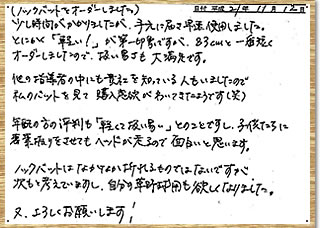 (ノックバットをオーダーしました) 日付 平成21年11月12日
少し時間がかかりましたが、手元に届き早速使用しました。
とにかく「軽い!」が第一印象ですが、83cmと一番短く
オーダーしましたので、扱い易さも大満足です。
他の指導者の中にも貴社を知っている人もいましたので
私のバットを見て購入意欲がわいてきたようです(笑)
年配の方の評判も「軽くて扱い易い」とのことですし、子供たちに
素振りをさせてもヘッドが走るので面白いと思います。
ノックバットはなかなか折れるものではないですが
次もと考えていますし、自分の草野球用も欲しくなりました。
又、よろしくお願いします!